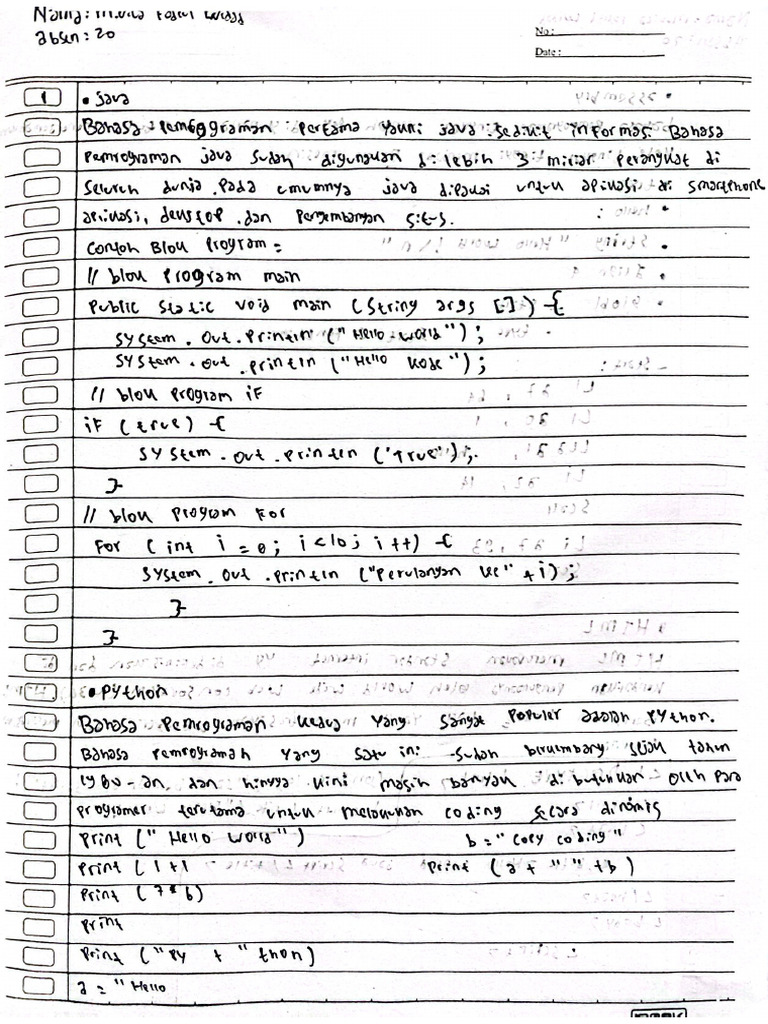 Nama:
absen: 20
No:
Date:
1 • Java
Bahasa Pemrograman Pertama yakni java. Sedikit informasi Bahasa
Pemrograman java sudah digunakan di lebih 3 miliar Perangkat di
Seluruh dunia. Pada umumnya java dipakai untuk aplikasi di smartphone
aplikasi, desktop dan Pengembangan sites.
Contoh Blok Program =
// blok Program main
Public static void main (String args []) {
System. Out. Println ("Hello world");
System. out. println ("Hello kode");
// blok Program if
if (true) {
System. out. println ('True');
}
// blok Program For
For (int i = 0; i <10; i ++) {
System. out. println ("Perulangan ke" + i);
}
}
• Python
Bahasa Pemrograman kedua Yang Sangat Populer adalah Python.
Bahasa Pemrograman Yang Satu ini Sudah berkembang Sejak tahun
1980-an, dan hingga kini masih banyak di butuhkan Oleh Para
Programer terutama untuk melakukan coding secara dinamis
Print ("Hello World") b = "Copy coding"
Print (1+1 Print (a + " " + b)
Print (7*6)
Print
Print ("Py + "thon)
a = "Hello